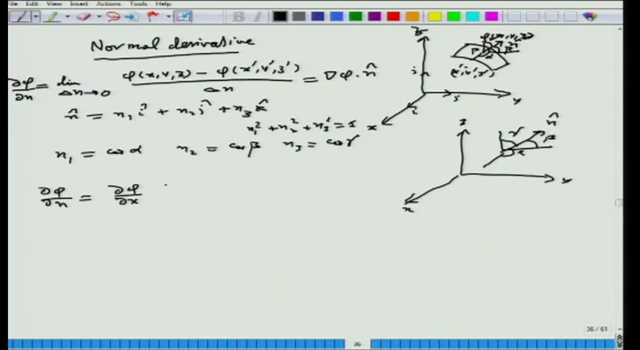 File Edit View Insert Actions Tools Help
Normal derivative
∂φ/∂n = lim Δn→0 (φ(x,y,z) − φ(x',y',z'))/Δn = ∇φ·n̂
n̂ = n₁ î + n₂ ĵ + n₃ k̂
n₁² + n₂² + n₃² = 1
n₁ = cosα n₂ = cosβ n₃ = cosγ
∂φ/∂n = ∂φ/∂x
z
φ(x,y,z)
(x',y',z')
y
x
z
n̂
γ
β
α
y
x
36
36 / 61